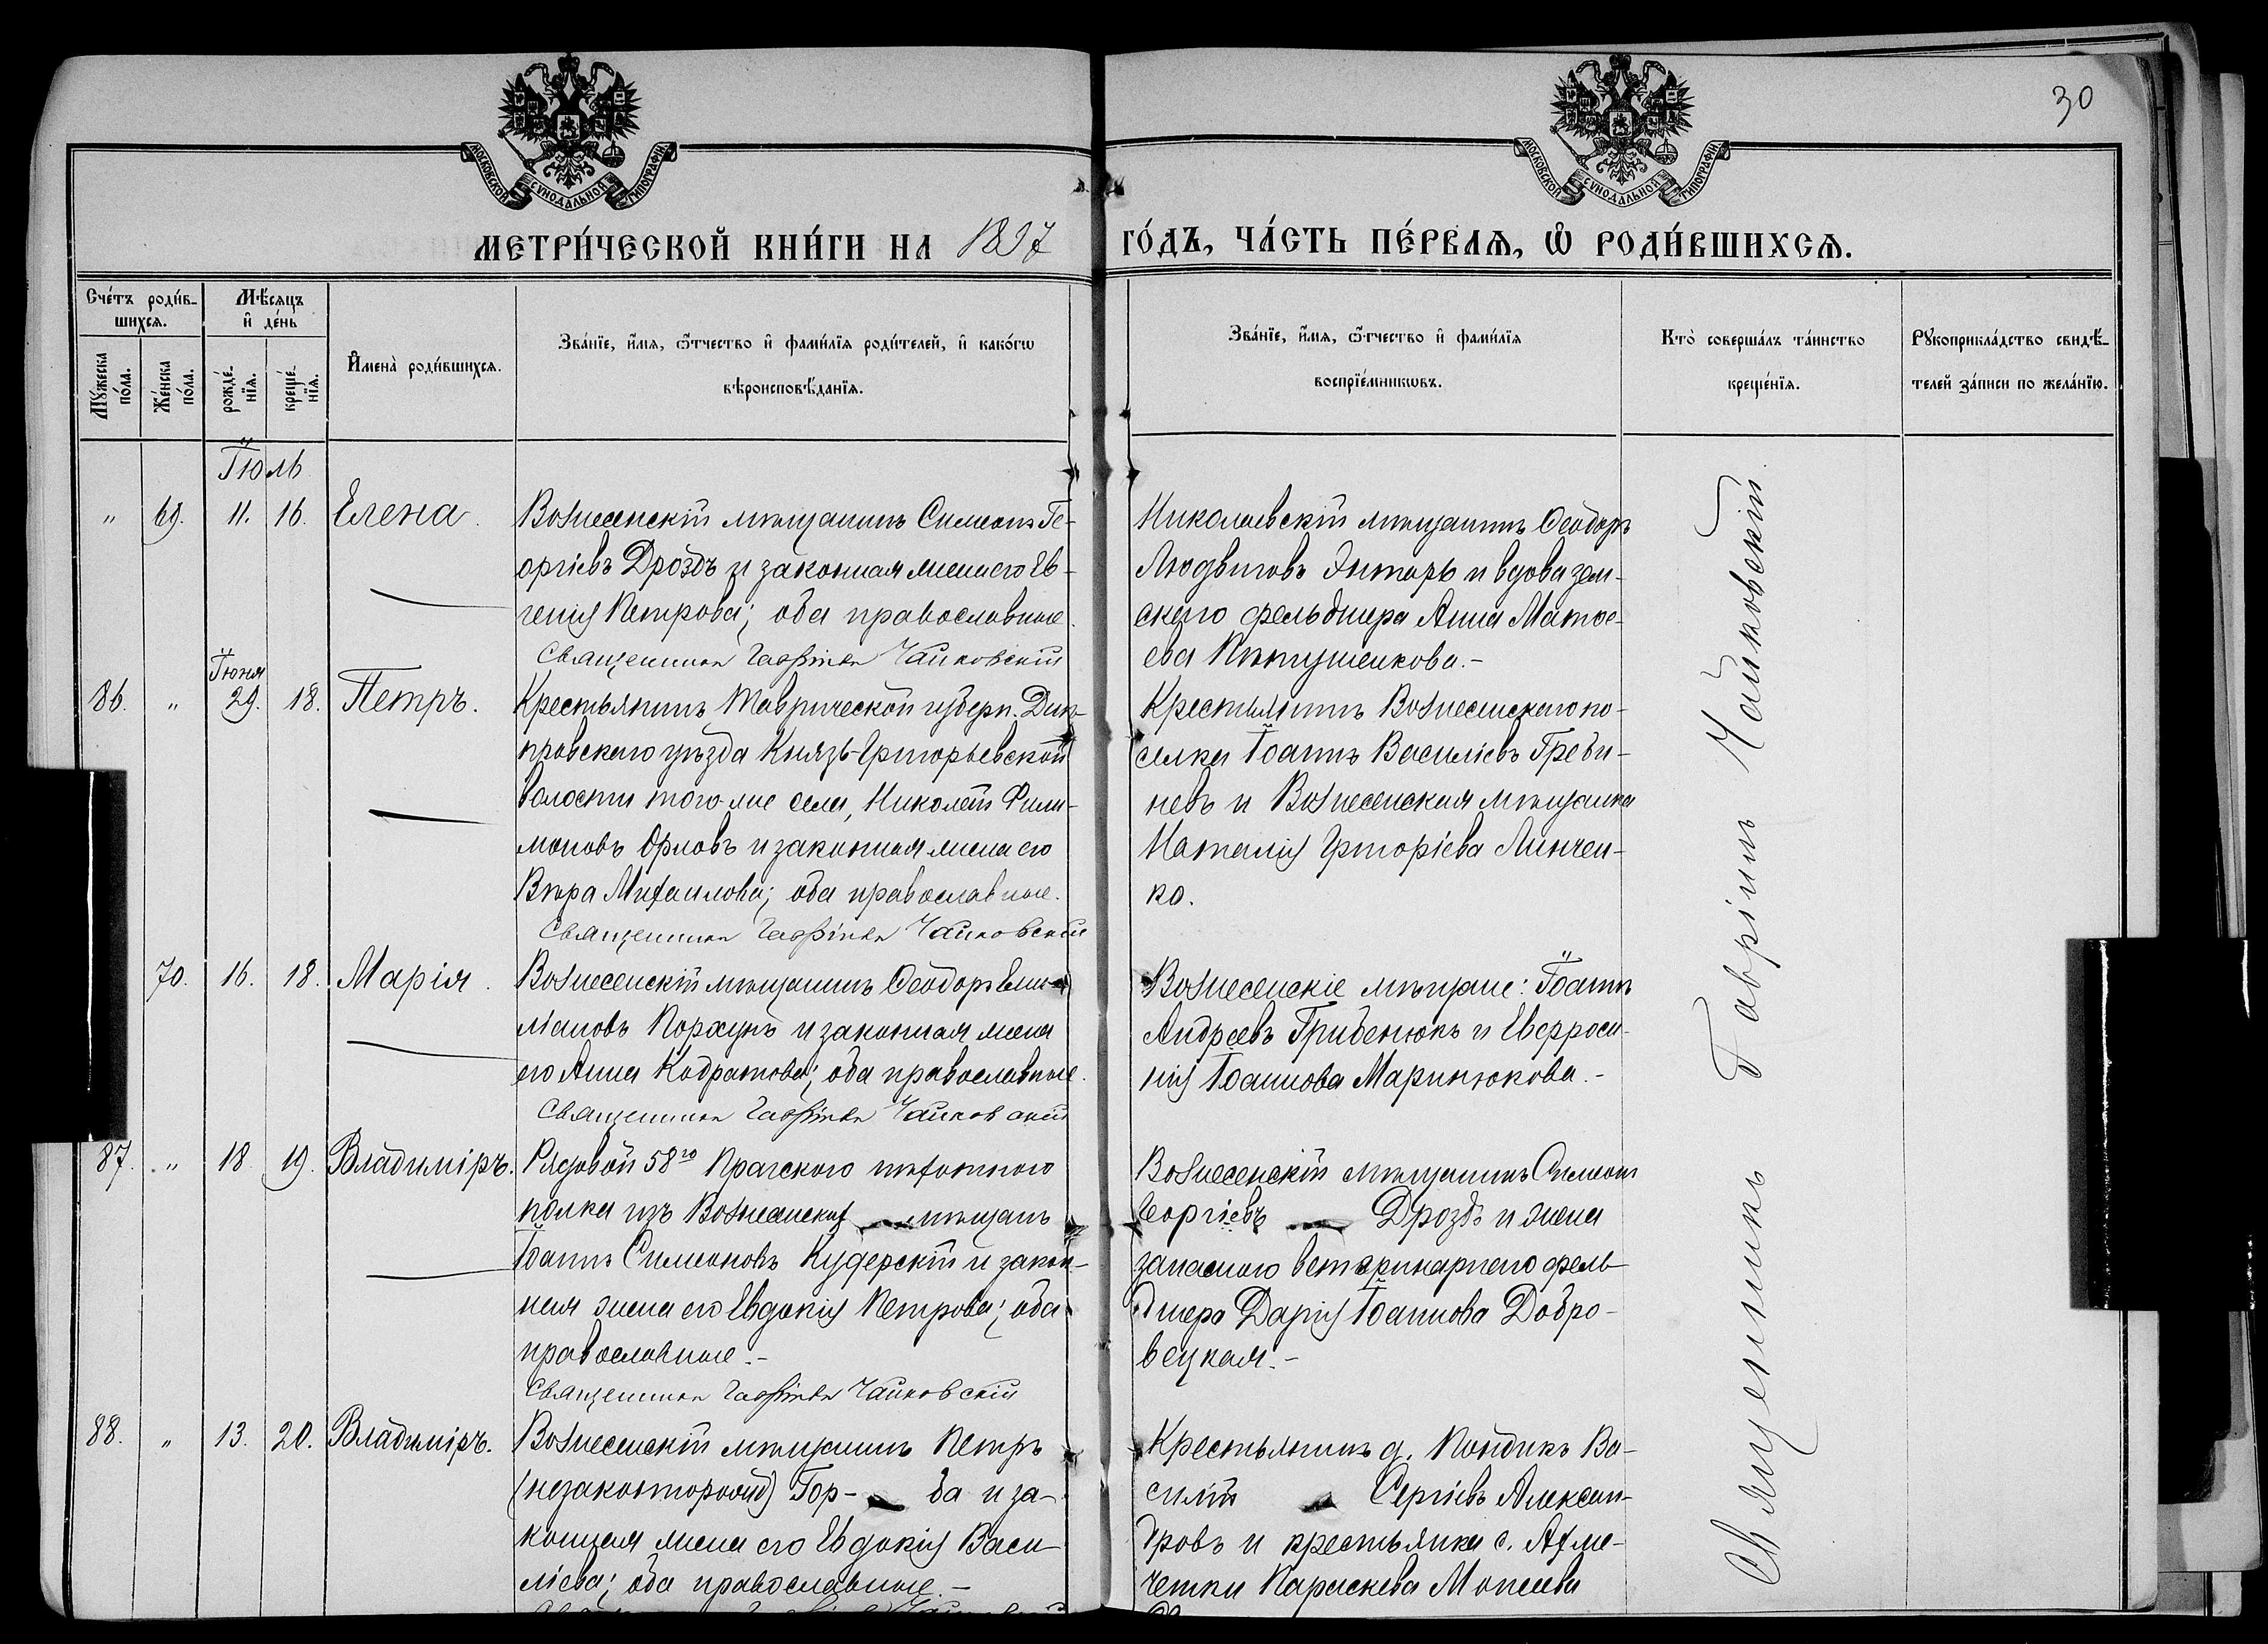 30
МОСКОВСКОЙ СѴНОДАЛЬНОЙ ТИПОГРАФІИ
МОСКОВСКОЙ СѴНОДАЛЬНОЙ ТИПОГРАФІИ
МЕТРИ́ЧЕСКОЙ КНИ́ГИ НА 1897 ГО́ДЪ, ЧА́СТЬ ПЕ́РВАѦ, Ѡ҆ РОДИ́ВШИХСѦ.
Сче́тъ роди́в-
шихсѧ.
Мѣ́сяцъ
и҆ де́нь
И҆мена̀ роди́вшихсѧ.
Зва́нїе, и҆́мѧ, ѻ҆́тчество и҆ фами́лїѧ роди́телей, и҆ како́гѡ
вѣроисповѣ́данїѧ.
Зва́нїе, и҆́мѧ, ѻ҆́тчество и҆ фами́лїѧ
воспрїе́мникѡвъ.
Кто̀ соверша́лъ та́инство
креще́нїѧ.
Рꙋкоприкла́дство свидѣ́-
телей за́писи по жела́нїю.
Мꙋ́жеска
по́ла.
Же́нска
по́ла.
рожде́-
нїѧ.
креще́-
нїѧ.
Іюль
" 69. 11. 16. Елена.
Вознесенскій мѣщанинъ Симеонъ Ге-
оргіевъ Дроздъ и законная жена его Ев-
генія Петрова; оба православные.
Священникъ Гавріилъ Чайковскій
Николаевскій мѣщанинъ Ѳеодоръ
Людвиговъ и вдова зем-
скаго фельдшера Анна Матѳе-
ева Пѣтушенкова.-
Іюня
86. " 29. 18. Петръ.
Крестьянинъ Таврической губерн. Днѣ-
провскаго уѣзда Князь-Григорьевской
волости того-же села, Николай Фили-
моновъ Орловъ и законная жена его
Вѣра Михаилова; оба православные.
Священникъ Гавріилъ Чайковскій
Крестьянинъ Вознесенскаго по-
селка Іоаннъ Василіевъ Греби-
невъ и Вознесенская мѣщанка
Наталія Григоріева Линчен-
ко.
70. 16. 18. Марія.
Вознесенскій мѣщанинъ Ѳеодоръ
Порхунъ и законная жена
его Анна Кодратова; оба православные.
Священникъ Гавріилъ Чайковскій
Вознесенскіе мѣщане: Іоаннъ
Андреевъ Гриденюкъ и Евфроси-
нія Іоаннова Маринюкова.-
87. " 18 19. Владиміръ.
Рядовой 58го Прагскаго пѣхотнаго
полка изъ Вознесенских мѣщанъ
Іоаннъ Симеоновъ Кудерскій и закон-
ная жена его Евдокія Петрова; оба
православные.-
Священникъ Гавріилъ Чайковскій
Вознесенскій мѣщанинъ Симеонъ
Георгіевъ Дроздъ и жена
запаснаго ветеринарнаго фель-
дшера Дарія Іоаннова Добро-
вецкая.-
88. " 13. 20. Владиміръ.
Вознесенскій мѣщанинъ Петръ
(незаконнорожд) Гор- ба и за-
конная жена его Евдокія Васи-
ліева; оба православные.-
Крестьянинъ д. Кондикъ Ва-
силій Сергіевъ Алексан-
дровъ и крестьянка с. Ахме-
четки Параскева Моисеева
Священникъ Гавріилъ Чайковскій